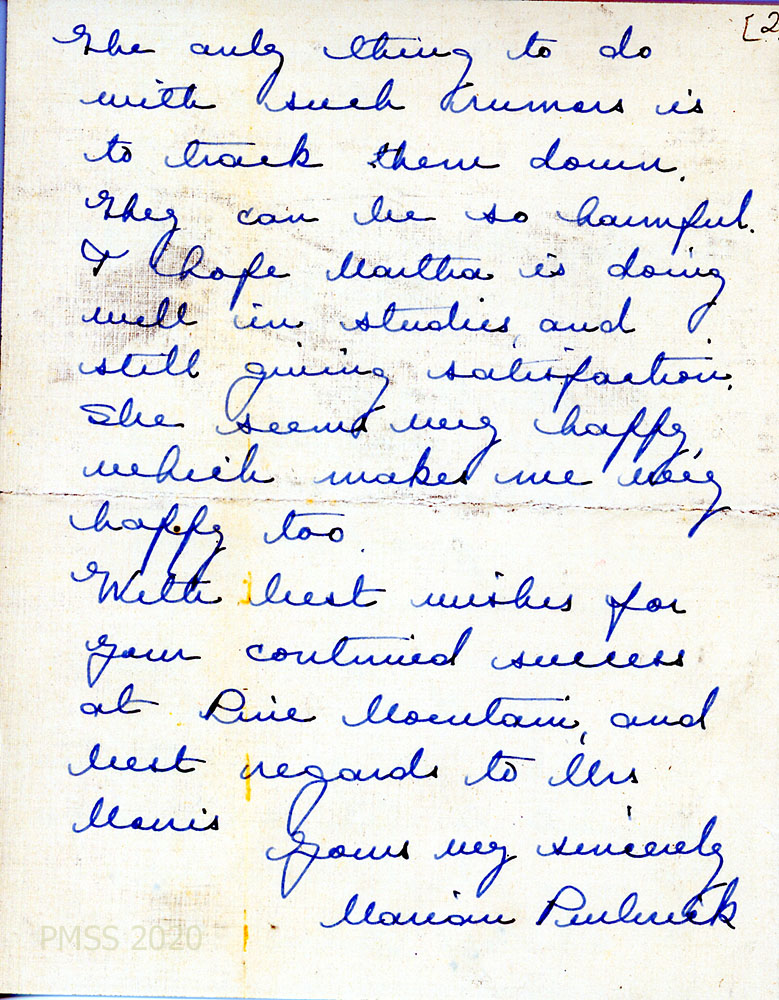 [2
The only thing to do
with such rumors is
to track them down.
They can be so harmful.
I hope Martha is doing
well in studies, and
still giving satisfaction.
She seems very happy,
which makes me very
happy too.
With best wishes for
your continued success
at Pine Mountain, and
best regards to Mrs
Morris
Yours very sincerely
Marian
PMSS 2020